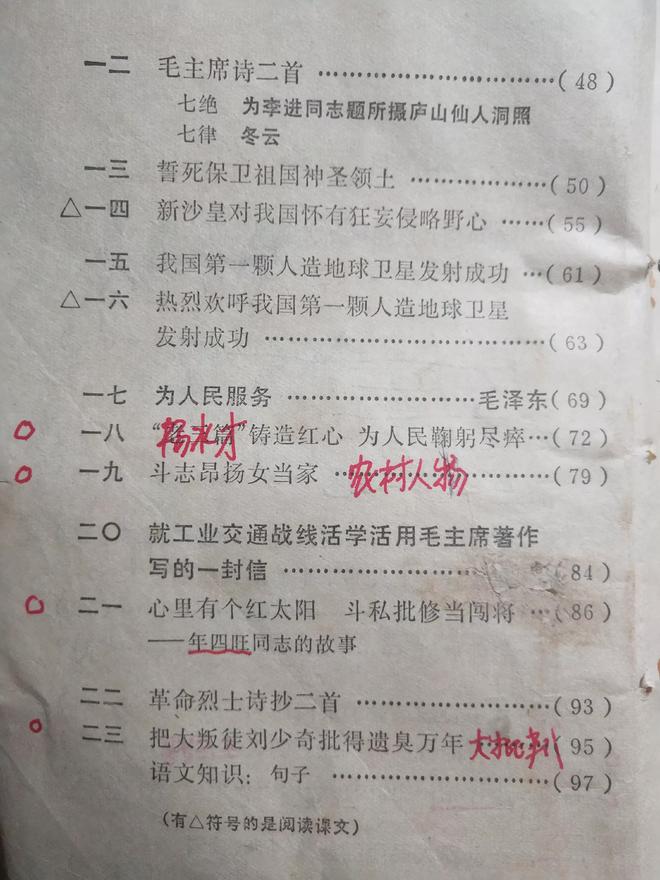 一二 毛主席诗二首 ……………………………(48)
七绝 为李进同志题所摄庐山仙人洞照
七律 冬云
一三 誓死保卫祖国神圣领土 ………………(50)
△一四 新沙皇对我国怀有狂妄侵略野心 ……(55)
一五 我国第一颗人造地球卫星发射成功 …(61)
△一六 热烈欢呼我国第一颗人造地球卫星
发射成功 …………………………………(63)
一七 为人民服务 ………………………毛泽东(69)
一八 “老三篇”铸造红心 为人民鞠躬尽瘁…(72)
杨水才
一九 斗志昂扬女当家 …………………………(79)
农村人物
二〇 就工业交通战线活学活用毛主席著作
写的一封信 ………………………………(84)
二一 心里有个红太阳 斗私批修当闯将 …(86)
——年四旺同志的故事
二二 革命烈士诗抄二首 ………………………(93)
二三 把大叛徒刘少奇批得遗臭万年 …………(95)
大批判
语文知识：句子 …………………………(97)
(有△符号的是阅读课文)